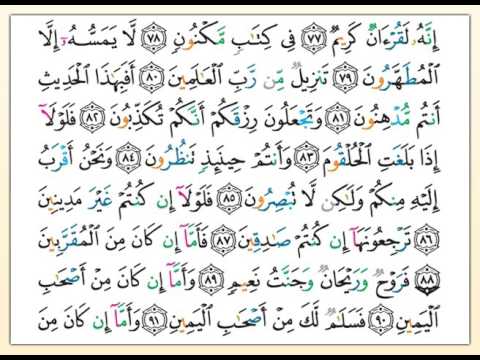 إِنَّهُۥ لَقُرْءَانٌ كَرِيمٌ ﴿٧٧﴾ فِى كِتَـٰبٍ مَّكْنُونٍ ﴿٧٨﴾ لَّا يَمَسُّهُۥٓ إِلَّا
ٱلْمُطَهَّرُونَ ﴿٧٩﴾ تَنزِيلٌ مِّن رَّبِّ ٱلْعَـٰلَمِينَ ﴿٨٠﴾ أَفَبِهَـٰذَا ٱلْحَدِيثِ
أَنتُم مُّدْهِنُونَ ﴿٨١﴾ وَتَجْعَلُونَ رِزْقَكُمْ أَنَّكُمْ تُكَذِّبُونَ ﴿٨٢﴾ فَلَوْلَآ
إِذَا بَلَغَتِ ٱلْحُلْقُومَ ﴿٨٣﴾ وَأَنتُمْ حِينَئِذٍ تَنظُرُونَ ﴿٨٤﴾ وَنَحْنُ أَقْرَبُ
إِلَيْهِ مِنكُمْ وَلَـٰكِن لَّا تُبْصِرُونَ ﴿٨٥﴾ فَلَوْلَآ إِن كُنتُمْ غَيْرَ مَدِينِينَ
﴿٨٦﴾ تَرْجِعُونَهَآ إِن كُنتُمْ صَـٰدِقِينَ ﴿٨٧﴾ فَأَمَّآ إِن كَانَ مِنَ ٱلْمُقَرَّبِينَ
﴿٨٨﴾ فَرَوْحٌ وَرَيْحَانٌ وَجَنَّتُ نَعِيمٍ ﴿٨٩﴾ وَأَمَّآ إِن كَانَ مِنْ أَصْحَـٰبِ
ٱلْيَمِينِ ﴿٩٠﴾ فَسَلَـٰمٌ لَّكَ مِنْ أَصْحَـٰبِ ٱلْيَمِينِ ﴿٩١﴾ وَأَمَّآ إِن كَانَ مِنَ